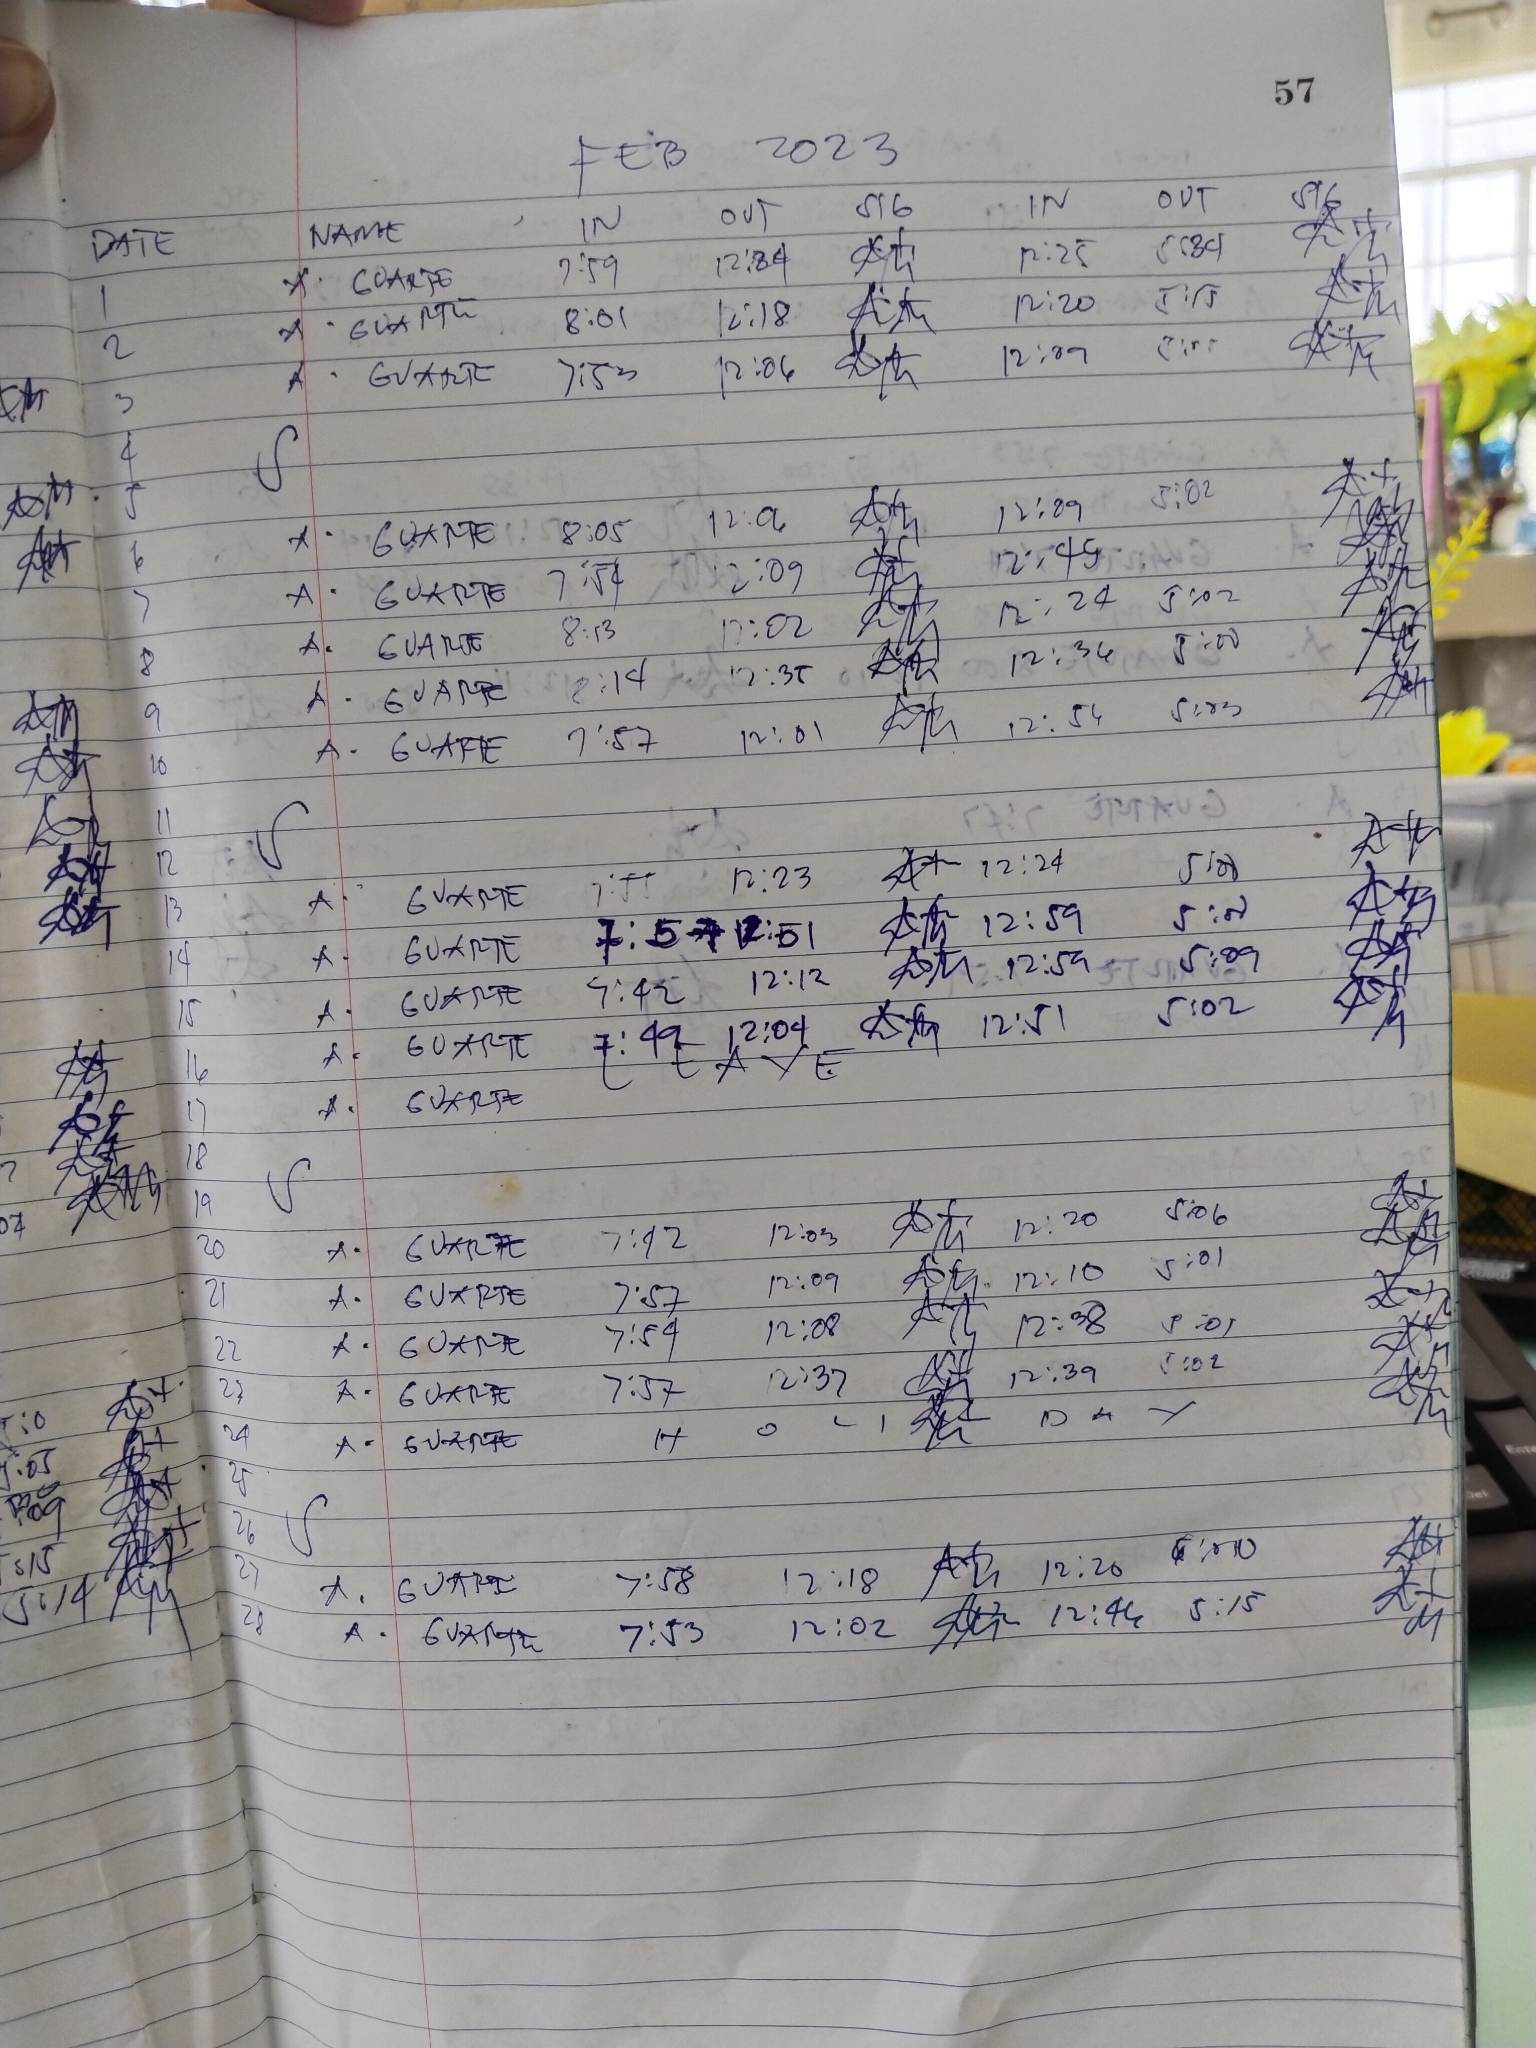 57
FEB 2023
DATE NAME IN OUT SIG IN OUT SIG
1 A. GUARTE 7:59 12:24 12:25
2 A. GUARTE 8:01 12:18 12:20 5:15
3 A. GUARTE 7:53 12:06 12:09
4
5
6 A. GUARTE 8:05 12:06 12:09 5:02
7 A. GUARTE 7:54 12:09 12:45
8 A. GUARTE 8:13 12:02 12:24 5:02
9 A. GUARTE 8:14 12:35 12:36 5:00
10 A. GUARTE 7:57 12:01 12:54 5:03
11
12
13 A. GUARTE 7:55 12:23 12:24
14 A. GUARTE 7:57 12:51 12:59
15 A. GUARTE 7:42 12:12 12:59 5:09
16 A. GUARTE 7:49 12:04 12:51 5:02
17 A. GUARTE LEAVE
18
19
20 A. GUARTE 7:42 12:03 12:20 5:06
21 A. GUARTE 7:57 12:09 12:10 5:01
22 A. GUARTE 7:54 12:08 12:38 5:01
23 A. GUARTE 7:57 12:37 12:39 5:02
24 A. GUARTE HOLIDAY
25
26
27 A. GUARTE 7:58 12:18 12:20
28 A. GUARTE 7:53 12:02 12:46 5:15